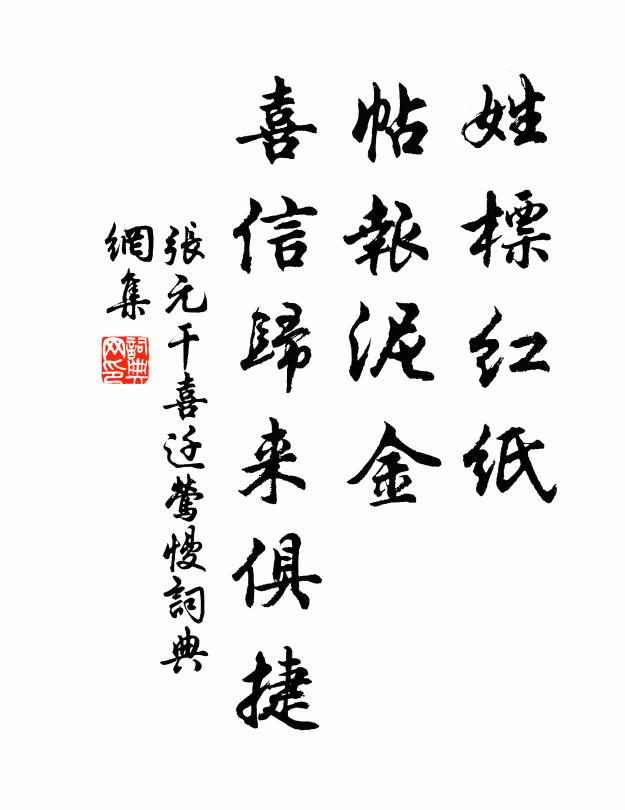 姓標紅紙
帖報泥金
喜信歸来俱捷
張元干喜迁鶯慢詞典
網集
詞典网印